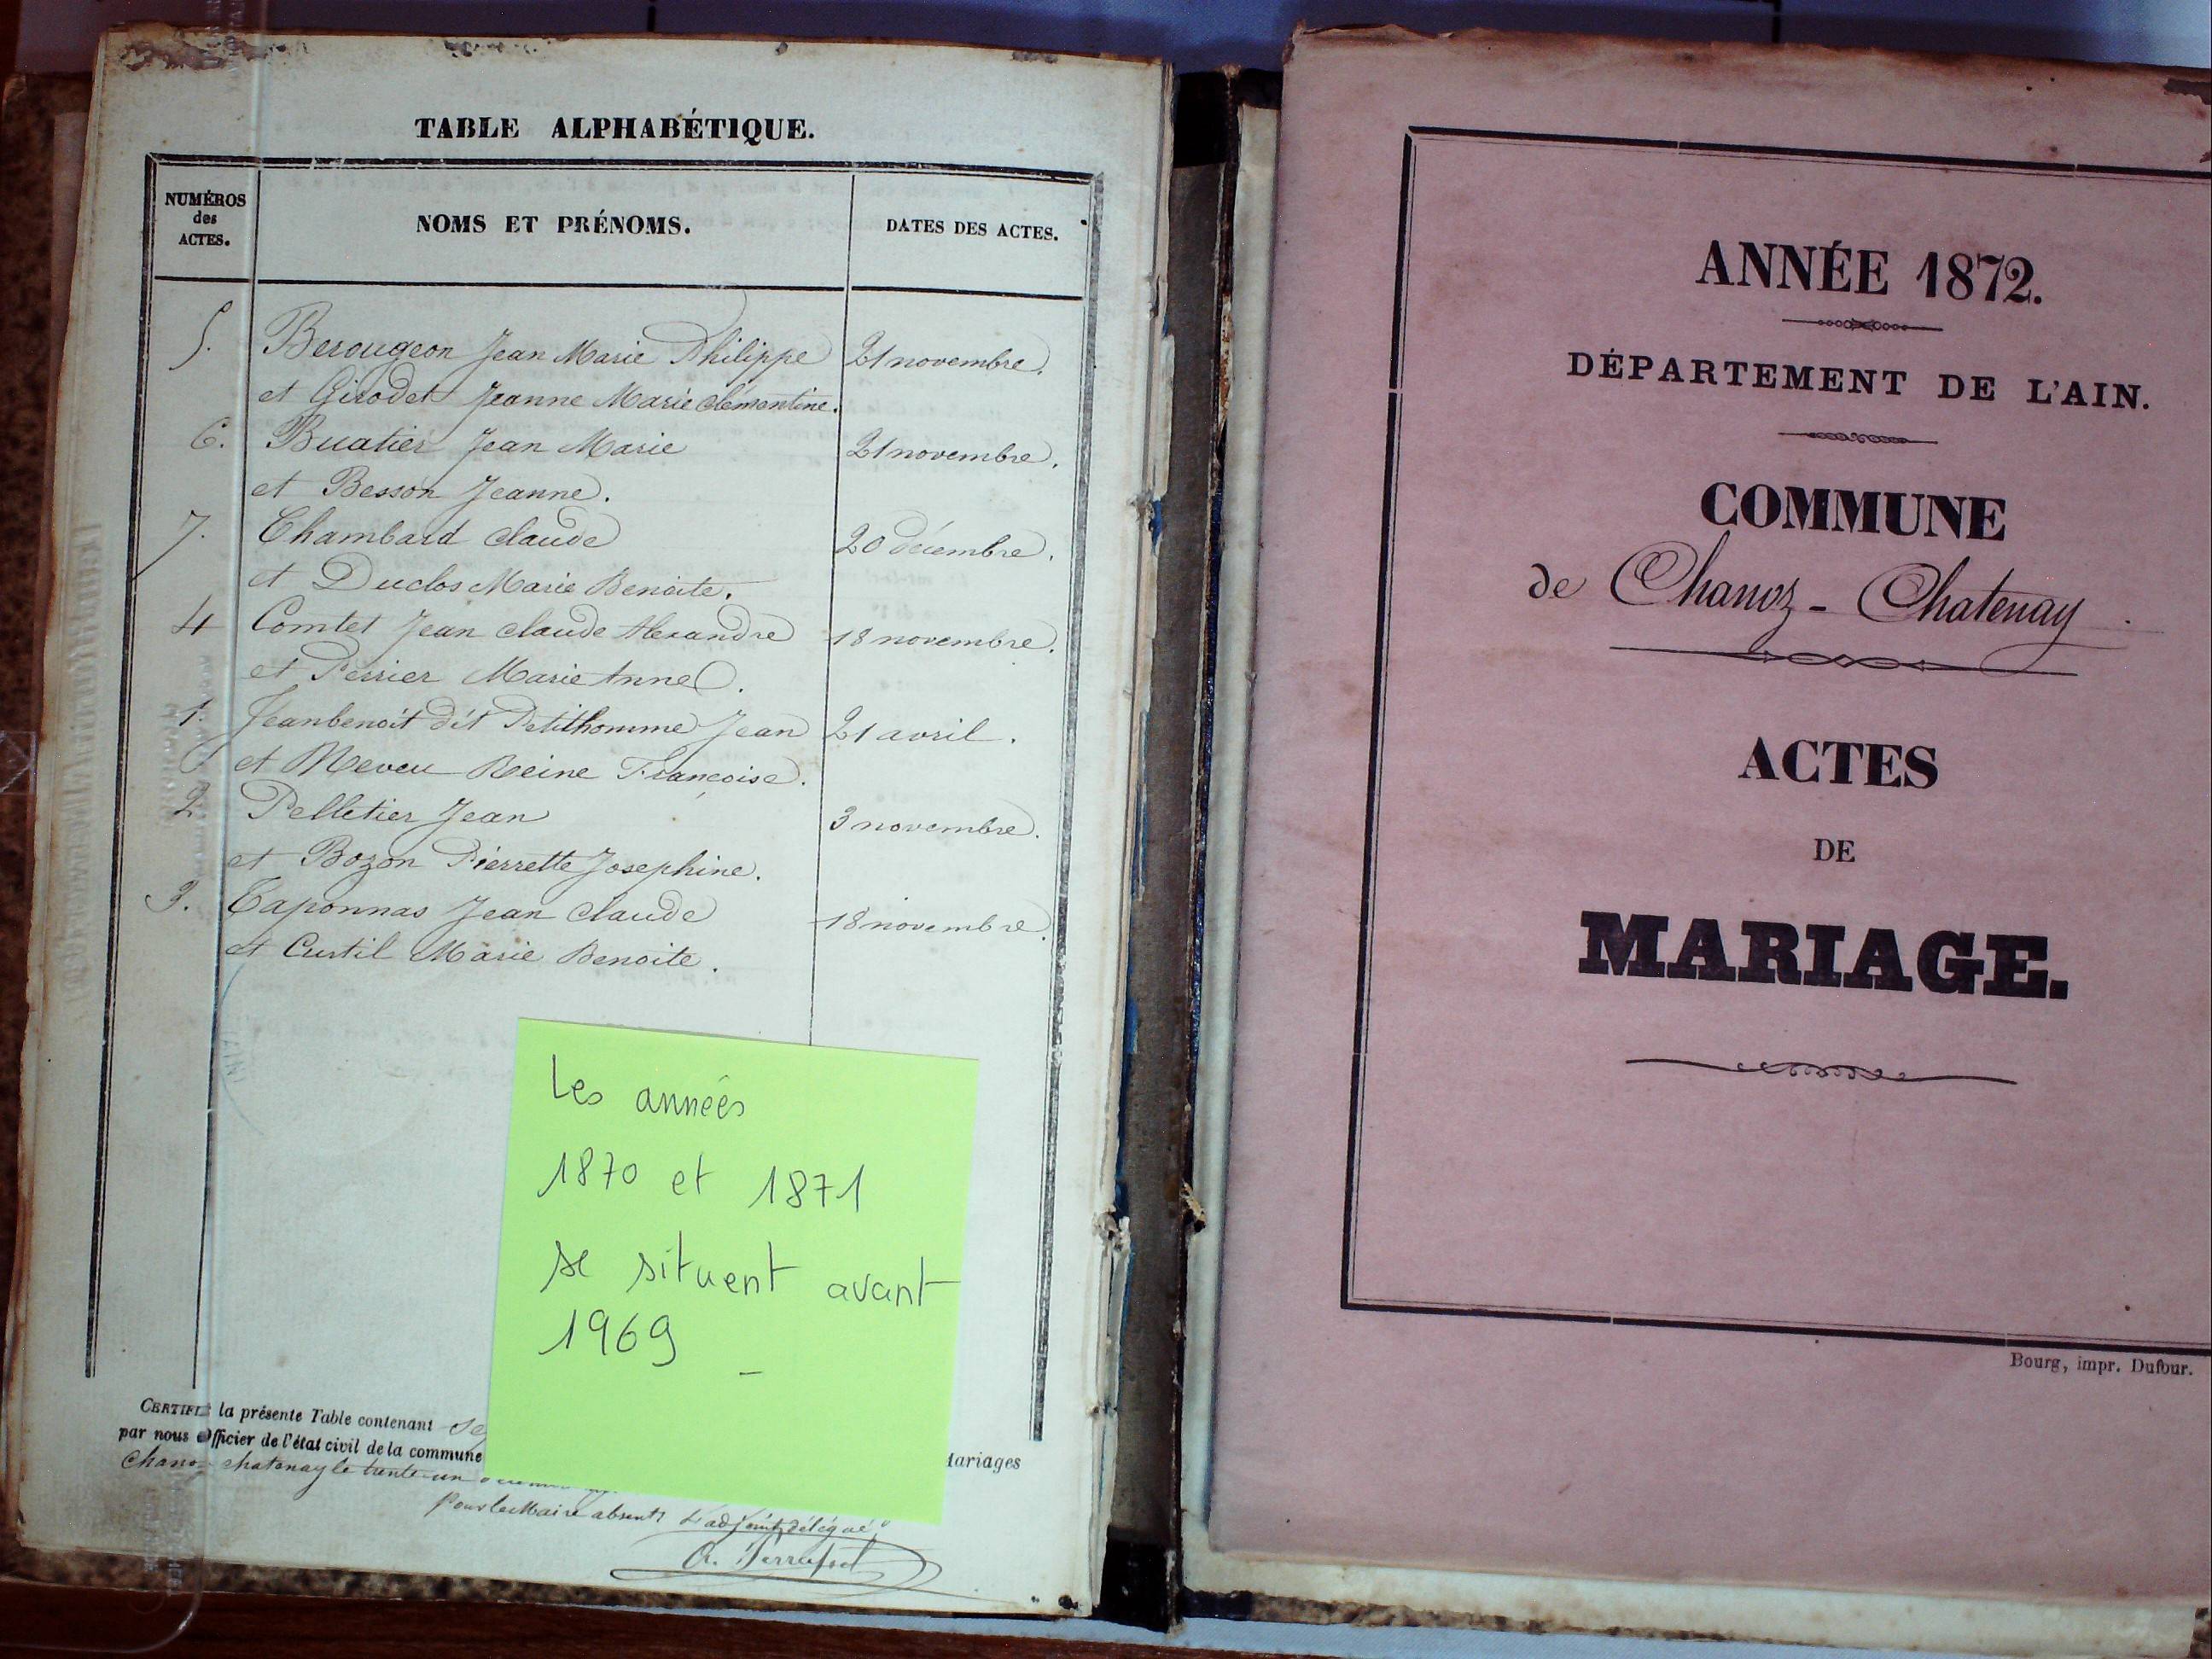 TABLE ALPHABÉTIQUE.
NUMÉROS des ACTES.
NOMS ET PRÉNOMS.
DATES DES ACTES.
5. Berougeon Jean Marie Philippe 21 novembre.
et Girodet Jeanne Marie clémentine.
6. Buatier Jean Marie 21 novembre.
et Besson Jeanne.
7. Chambard claude 20 décembre.
et Duclos Marie Benoite.
4 Comtet Jean claude Alexandre 18 novembre.
et Perrier Marie Anne.
1. Jeanbenoit dit Petithomme Jean 21 avril.
et Neveu Reine Françoise.
2 Pelletier Jean 3 novembre.
et Bozon Pierrette Josephine.
3. Taponnas Jean claude 18 novembre.
et Curtil Marie Benoite.
Les années
1870 et 1871
se situent avant
1969 -
CERTIFIÉ la présente Table contenant
par nous Officier de l'état civil de la commune
Mariages
chatenay le trente-un
Pour le Maire absent L'adjoint délégué
ANNÉE 1872.
DÉPARTEMENT DE L'AIN.
COMMUNE
de Chanoz - Chatenay
ACTES
DE
MARIAGE.
Bourg, impr. Dufour.